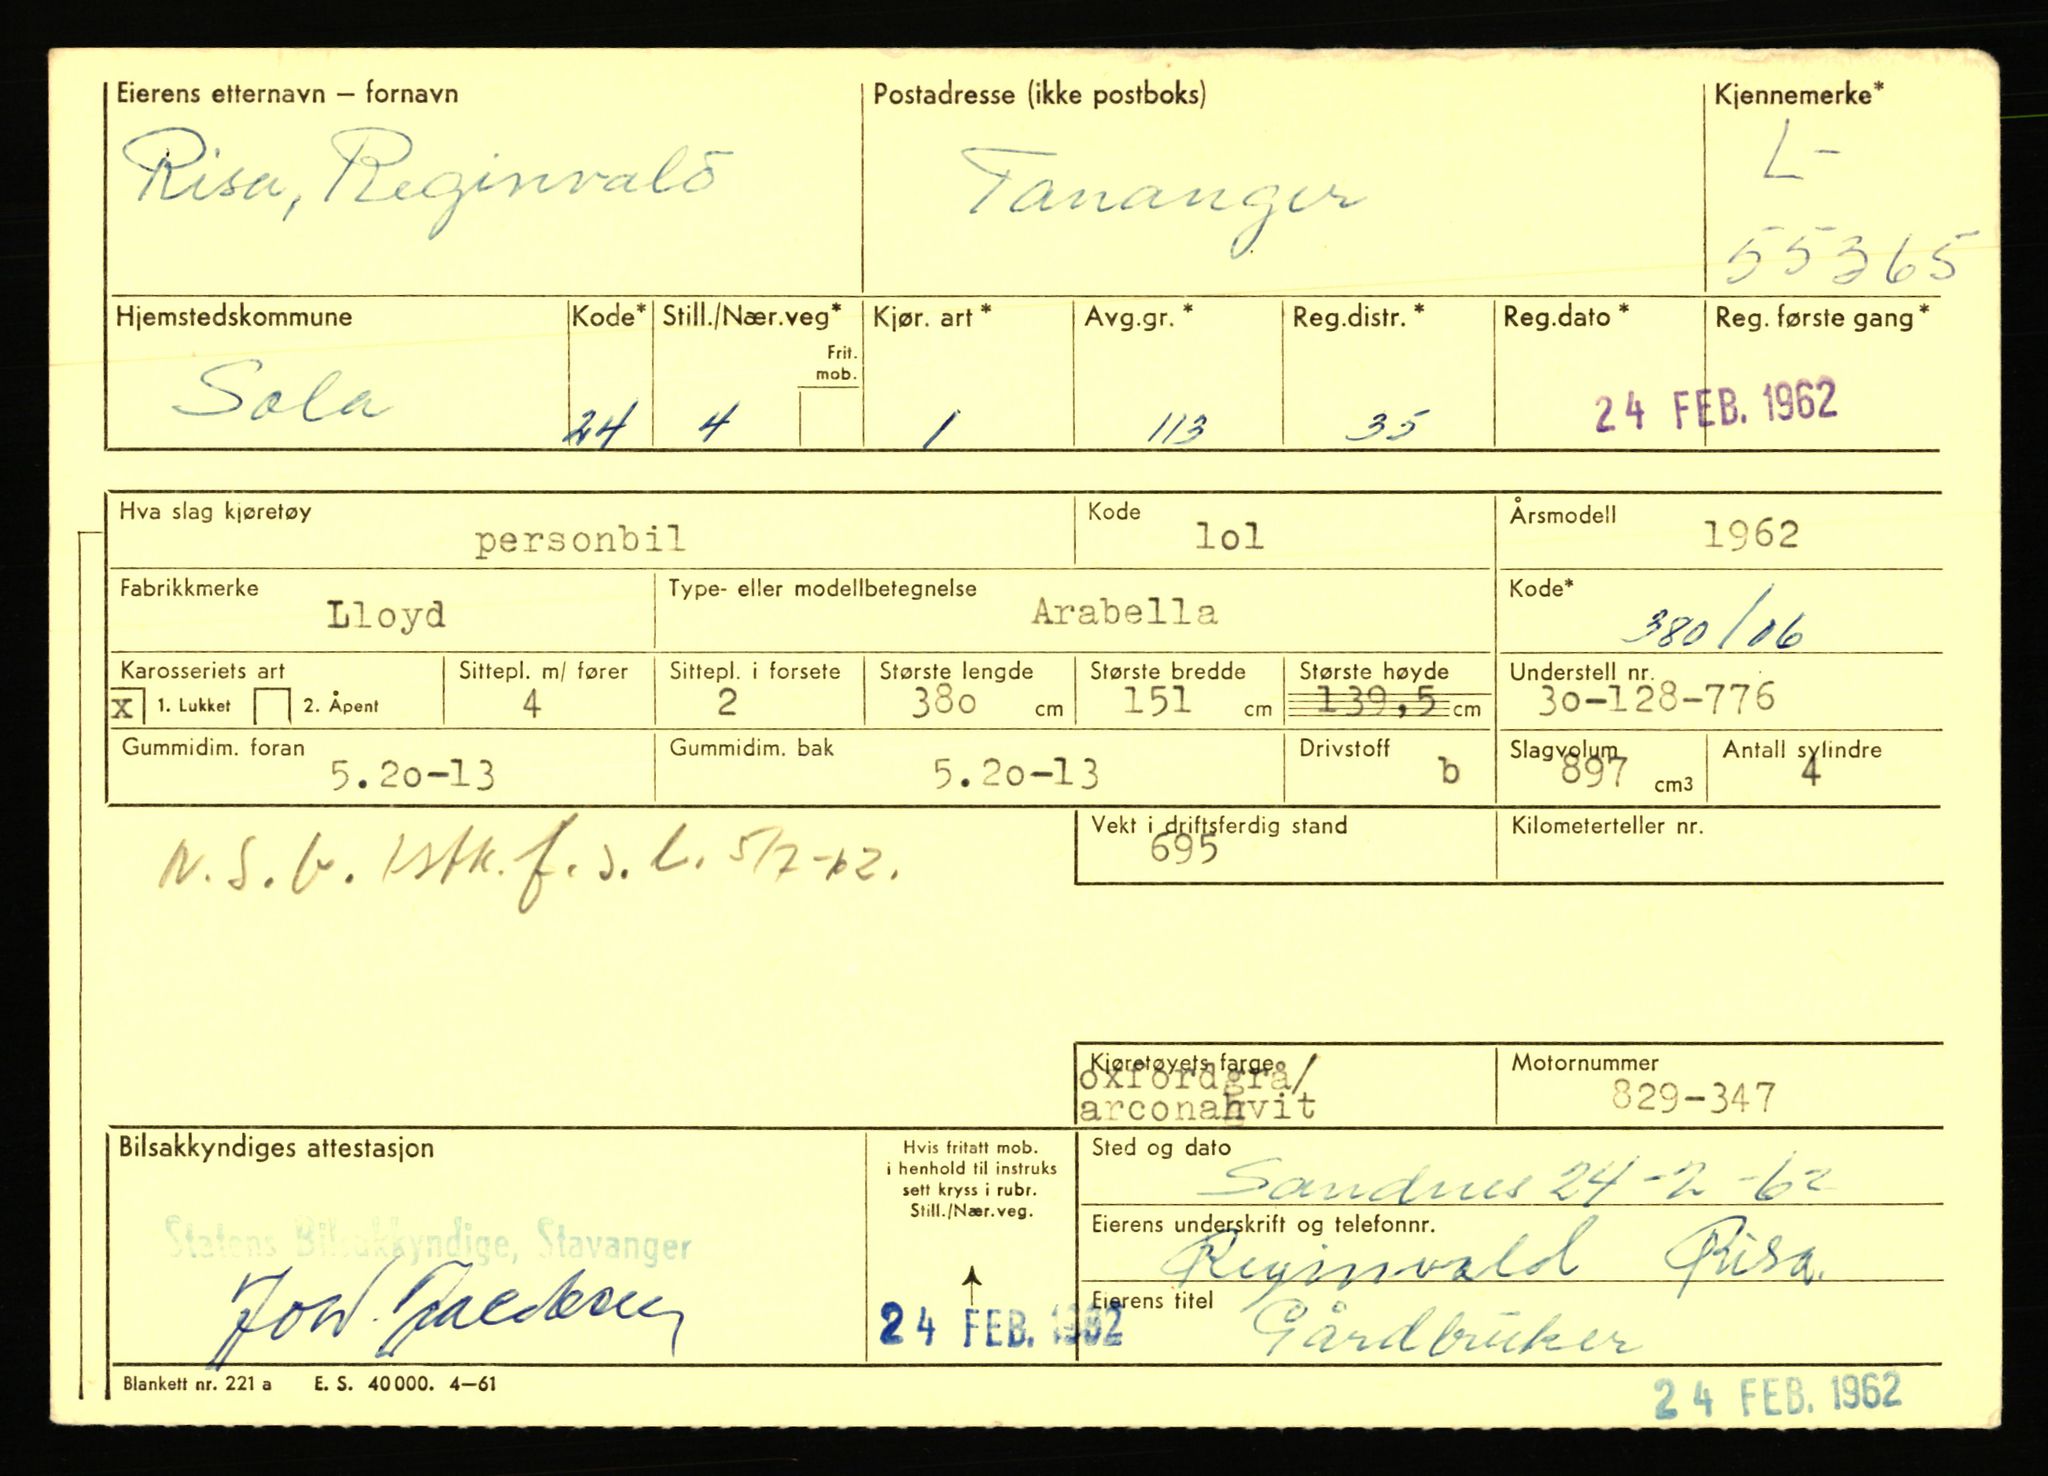 Eierens etternavn – fornavn
Risa, Reginvald
Postadresse (ikke postboks)
Tananger
Kjennemerke*
L-
55365
Hjemstedskommune
Sola
Kode*
24
Still./Nær.veg*
Frit. mob.
4
Kjør. art *
1
Avg.gr. *
113
Reg.distr. *
35
Reg.dato *
Reg. første gang *
24 FEB. 1962
Hva slag kjøretøy
personbil
Kode
lol
Årsmodell
1962
Fabrikkmerke
Lloyd
Type- eller modellbetegnelse
Arabella
Kode*
380/06
Karosseriets art
x 1. Lukket 2. Åpent
Sittepl. m/ fører
4
Sittepl. i forsete
2
Største lengde
380 cm
Største bredde
151 cm
Største høyde
139,5 cm
Understell nr.
30-128-776
Gummidim. foran
5.20-13
Gummidim. bak
5.20-13
Drivstoff
b
Slagvolum
897 cm3
Antall sylindre
4
N.S.
f.s.l. 5/7-62.
Vekt i driftsferdig stand
695
Kilometerteller nr.
Kjøretøyets farge
oxfordgrå/
arconahvit
Motornummer
829-347
Bilsakkyndiges attestasjon
Statens Bilsakkyndige, Stavanger
Hvis fritatt mob.
i henhold til instruks
sett kryss i rubr.
Still./Nær.veg.
24 FEB. 1962
Sted og dato
Sandnes 24-2-62
Eierens underskrift og telefonnr.
Reginvald Risa.
Eierens titel
Gårdbruker
Blankett nr. 221 a E. S. 40 000. 4–61
24 FEB. 1962